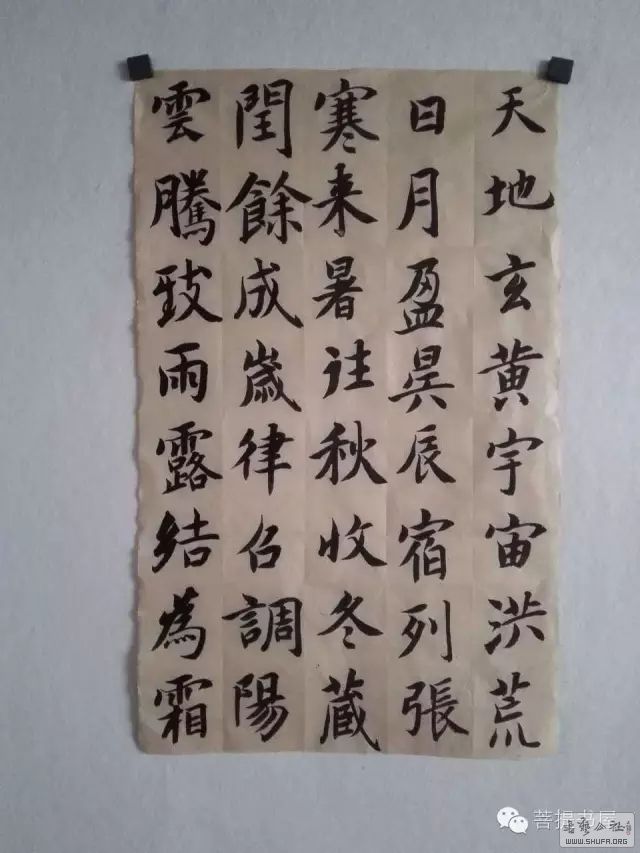 天地玄黄宇宙洪荒
日月盈昃辰宿列張
寒来暑往秋收冬蔵
閏餘成歲律召調陽
雲騰致雨露結為霜
菩提书屋
书艺公社
WWW.SHUFA.ORG